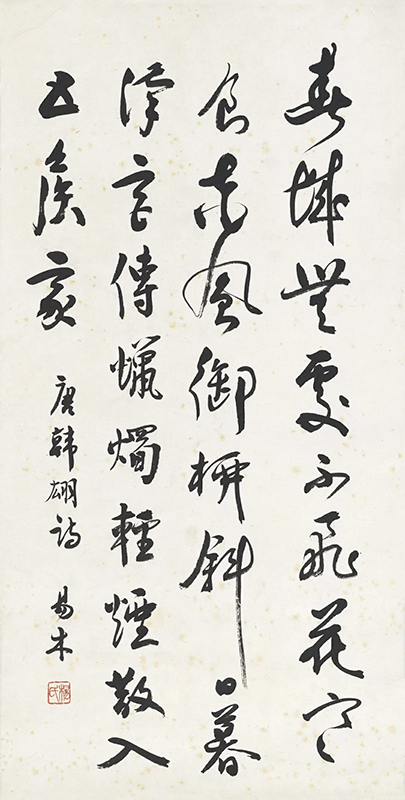 春城無處不飛花寒
食東風御柳斜日暮
漢宮傳蠟燭輕煙散入
五侯家
唐韓翃詩 易木
楊氏